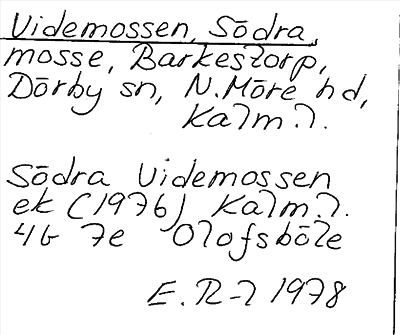 Videmossen, Södra
mosse, Barkestorp,
Dörby sn, N. Möre hd,
Kalm. l.
Södra Videmossen
ek (1976) Kalm. l.
4G 7e Olofsböle
E. R-l 1978